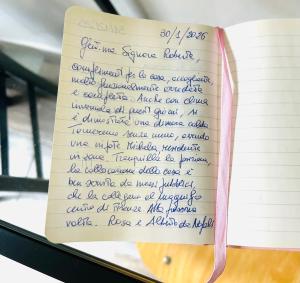 30/1/2025
Gent.ma Signora Roberta,
complimenti per la casa, accogliente,
molto funzionalmente arredata
e completa. Anche con clima
invernale di questi giorni, si
è dimostrata una dimora calda.
Torneremo senza meno, avendo
una nipote Michela, residente
in zona. Tranquilla la posizione,
la collocazione della casa è
ben servita da mezzi pubblici,
che la collegano al magnifico
centro di Firenze. Alla prossima
volta. Rosa e Alberto da Napoli